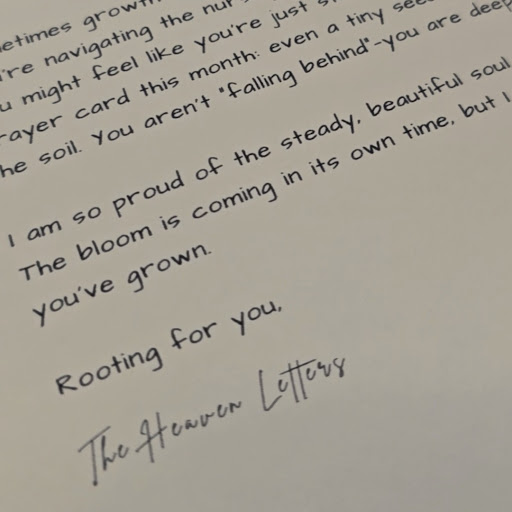 growth
navigating the
might feel like you're just
card this month: even a tiny
soil. You aren't "falling behind"-you are
I am so proud of the steady, beautiful soul
The bloom is coming in its own time, but I
you've grown.
Rooting for you,
The Heaven Letters